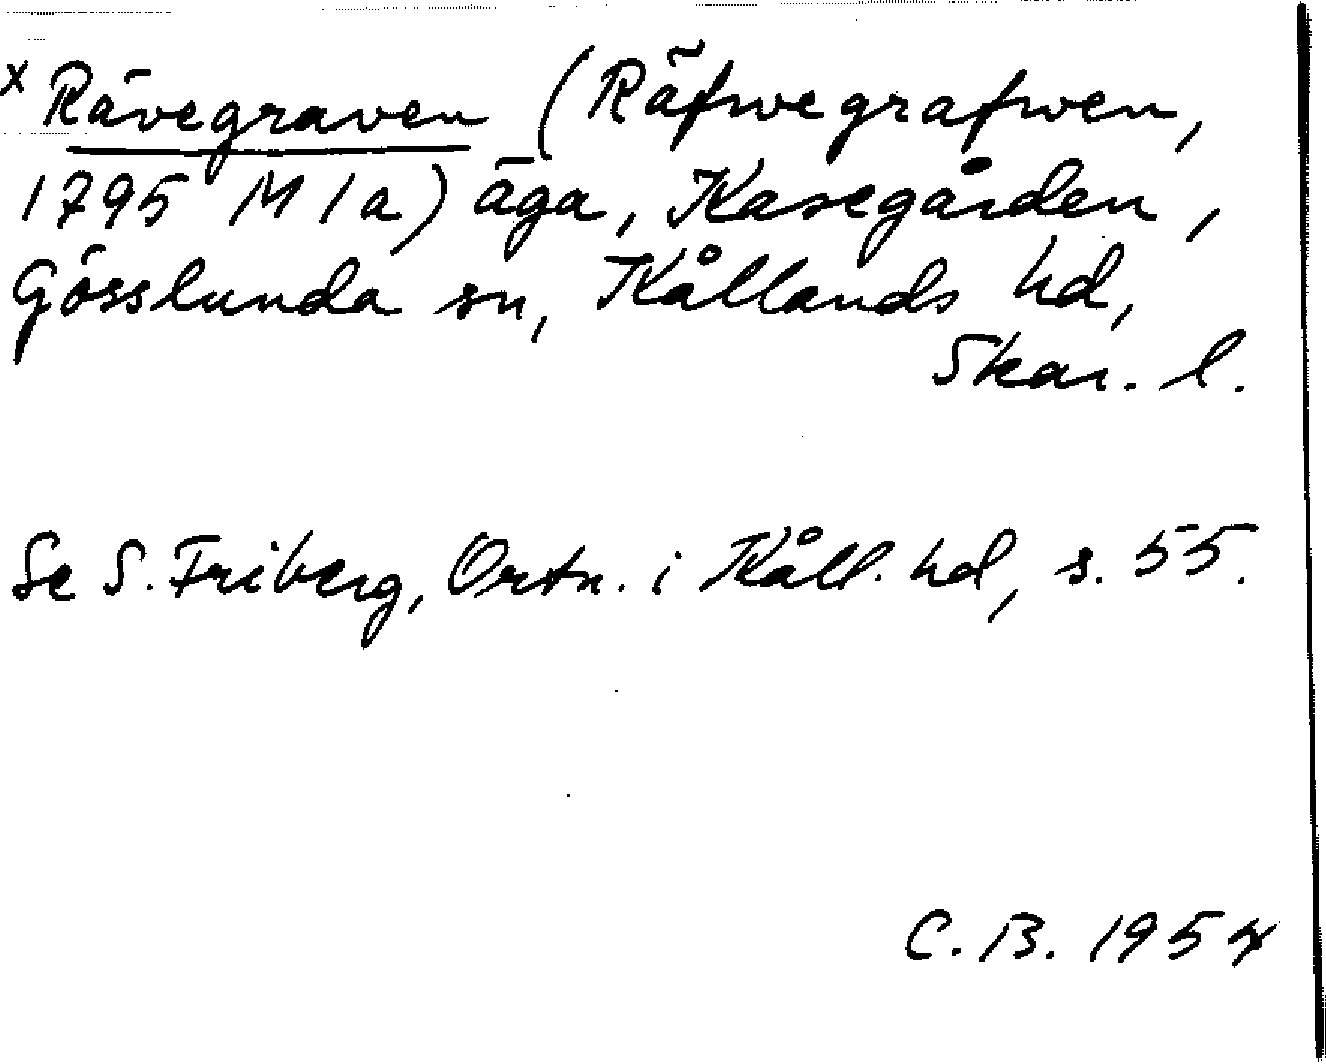 x Rävegraven (Räfwegrafwen,
1795 M 1a) äga, Kasegården,
Gösslunda sn, Kållands hd,
Skar. l.
Se S. Friberg, Ortn. i Kåll. hd, s. 55.
C. B. 1954